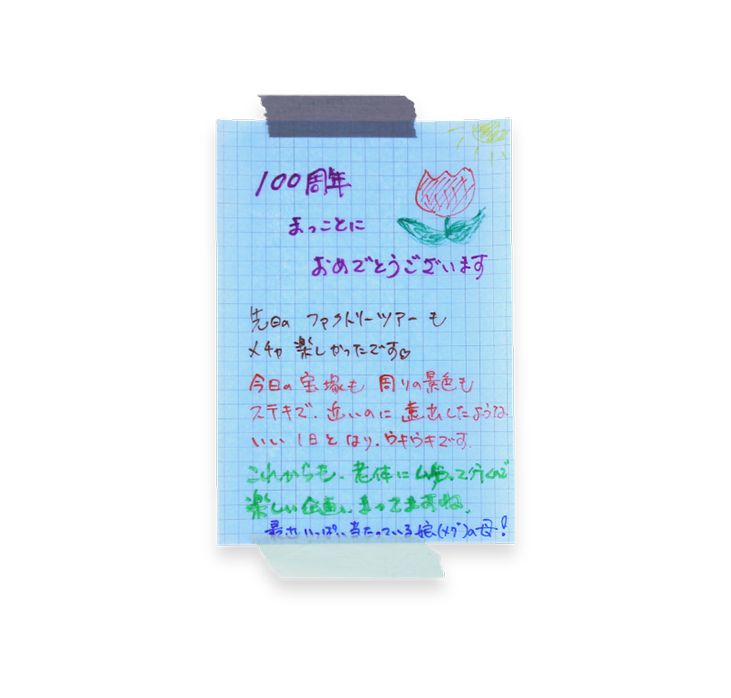 100周年
まっことに
おめでとうございます
先日の ファクトリーツアー も
メチャ 楽しかったです♡
今日の宝塚も 周りの景色も
ステキで、近いのに 遠出したような
いい 1日となり、ウキウキです。
これからも、老体に ムチ
楽しい企画、まってますね。
いっぱい 当たっている娘(メグ)の母!